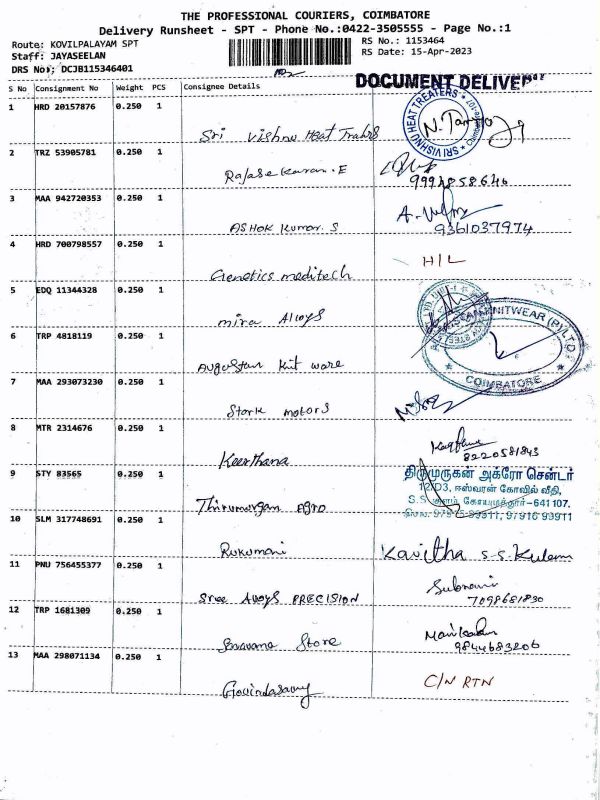 THE PROFESSIONAL COURIERS, COIMBATORE
Delivery Runsheet - SPT - Phone No.:0422-3505555 - Page No.:1
Route: KOVILPALAYAM SPT
RS No.: 1153464
Staff: JAYASEELAN
RS Date: 15-Apr-2023
DRS No: DCJB115346401
DOCUMENT DELIVERY
S No Consignment No Weight PCS Consignee Details
1 HRD 20157876 0.250 1
SRI VISHNU HEAT TREATERS
Sri Vishnu Heat
2 TRZ 53905781 0.250 1
Rajasekaran.E
3 MAA 942720353 0.250 1
ASHOK Kumar. S
9361037974
4 HRD 700798557 0.250 1
H/L
Genetics meditech
5 EDQ 11344328 0.250 1
mira Alloys
6 TRP 4818119 0.250 1
KNITWEAR (P) LTD
COIMBATORE
Augustan Knit ware
7 MAA 293073230 0.250 1
Stork motors
8 MTR 2314676 0.250 1
Keerthana
8220581843
9 STY 83565 0.250 1
திருமுருகன் அக்ரோ சென்டர்
12/D3, ஈஸ்வரன் கோவில் வீதி,
S.S. குளம், கோயமுத்தூர்-641 107.
Thirumurgan Agro
10 SLM 317748691 0.250 1
Rukumani
Kavitha S.S. Kulam
11 PNU 756455377 0.250 1
Sree Alloys PRECISION
7098681830
12 TRP 1681309 0.250 1
Store
9844683206
13 MAA 298071134 0.250 1
Govindasamy
C/N RTN